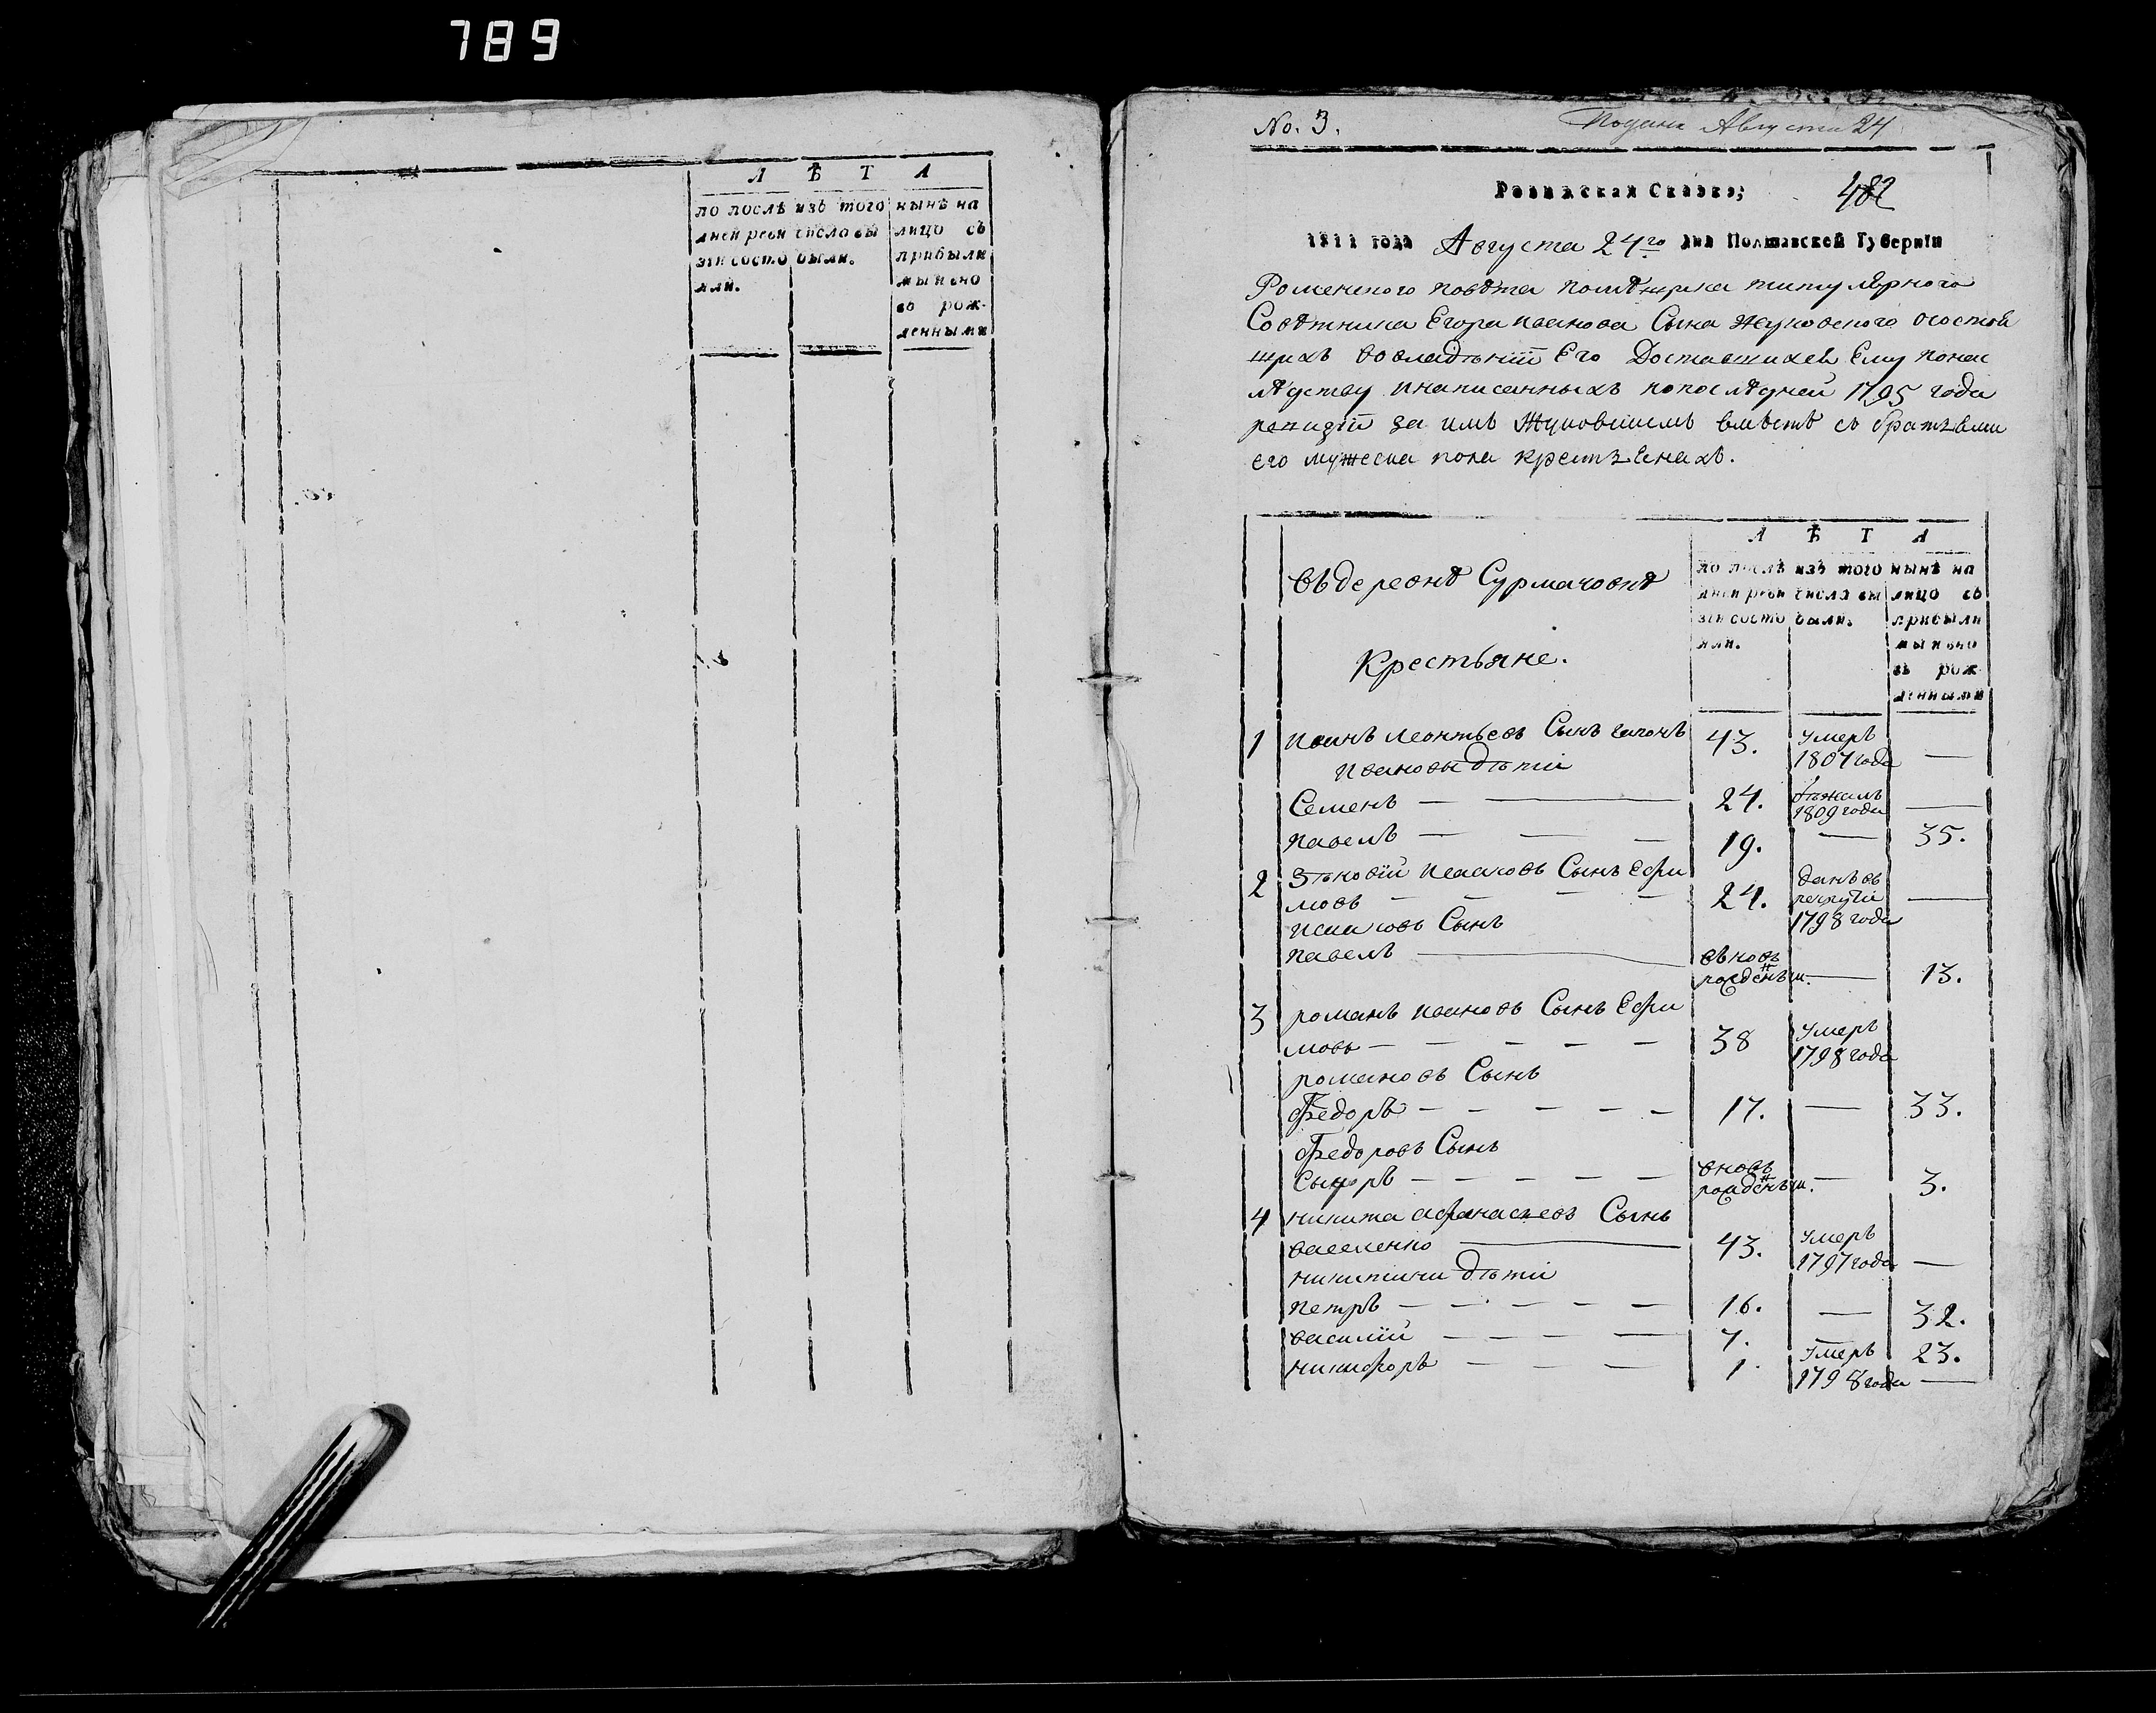 789
Л Ѣ Т А
по послѣ
дней реви
зіи состо
яли.
изъ того
числа вы
были.
нынѣ на
лицо съ
прибыли
ми и вно
въ рож-
денными
No. 3.
Подана Августа 24
Ревижская Сказка;
482
1811 года Августа 24го дня Полтавской Губерніи
Роменского повѣта помѣщика титулярного
Совѣтника Егора Иванова Сына Жуковского осостоя
щихъ вовладѣніи Его Доставшихся Ему понас
лѣдству инаписанныхъ попослѣдней 1795 года
ревизіи за имъ Жуковскимъ вмѣстѣ съ братьями
его мужеска пола крестьянахъ.
Л Ѣ Т А
по послѣ
дней реви
зіи состо
яли.
изъ того
числа вы
были.
нынѣ на
лицо съ
прибыли
ми и вно
въ рож-
денными
Въ деревнѣ Сурмачовкѣ
Крестьяне.
1 Иванъ Леонтьевъ Сынъ 43. умеръ 1807 года —
Ивановы дѣти
Семенъ — 24. бѣжалъ 1809 года —
Павелъ — 19. — 35.
2 Зѣновій Исаковъ Сынъ Ефи
мовъ — 24. данъ въ рекруты 1798 года —
Исаковъ Сынъ
Павелъ — вьновъ рожденъ — 13.
3 Романъ Ивановъ Сынъ Ефи
мовъ — 38 умеръ 1798 года
Романовъ Сынъ
Федоръ — 17. — 33.
Федоровъ Сынъ
Сыдоръ — вновъ рожденъ — 3.
4 Никита Афанасьевъ Сынъ
Василенко — 43. умеръ 1797 года —
Никитини дѣти
Петръ — 16. — 32.
Василій — 7. 23.
Никифоръ — 1. умеръ 1798 года —